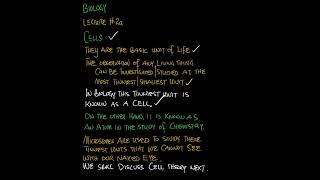 BIOLOGY
LECTURE #2a
CELLS:
THEY ARE THE BASIC UNIT OF LIFE
THE OBSERVATION OF ANY LIVING THING
CAN BE INVESTIGATED/STUDIED AT THE
MOST TINNIEST/SMALLEST UNIT
IN BIOLOGY THIS TINNIEST UNIT IS
KNOWN AS A CELL.
ON THE OTHER HAND, IT IS KNOWN AS
AN ATOM IN THE STUDY OF CHEMISTRY.
MICROSCOPES ARE USED TO STUDY THESE
TINNIEST UNITS THAT WE CANNOT SEE
WITH OUR NAKED EYE.
WE SHALL DISCUSS CELL THEORY NEXT.